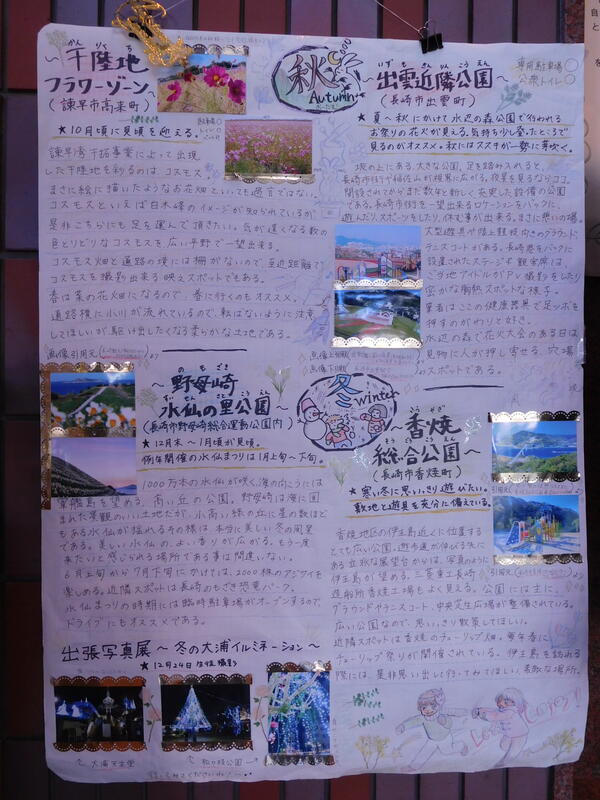 かんりくち
~干陸地
フラワーゾーン~
(諫早市高来町)
★10月頃に見頃を迎える。
駐車場○
トイレ○
諫早湾干拓事業によって出現
した干陸地を彩るのは、コスモス。
まさに絵に描いたようなお花畑といっても過言ではない。
コスモスといえば白木峰のイメージが知られているが
是非こちらにも足を運んで頂きたい。気が遠くなる数の
色とりどりなコスモスを広い平野で一望出来る。
コスモス畑と道路の境には柵がないので、至近距離で
コスモスを撮影出来る映えスポットでもある。
春は菜の花畑になるので、春に行くのもオススメ。
道路横に小川が流れているので、転ばないように注意
してほしいが駆け出したくなる柔らかな土地である。
秋
Autumn
いずもきんりんこうえん
~出雲近隣公園~
(長崎市出雲町)
専用駐車場○
公衆トイレ○
★夏~秋にかけて水辺の森公園で行われる
お祭りの花火が見える。気持ち少し登ったところで
見るのがオススメ。秋にはススキが一勢に芽吹く。
坂の上にある、大きな公園。足を踏み入れると、
長崎市街や稲佐山が視界に広がる。夜景を見るならココ。
開設されてからまだ数年と新しく充実した設備の公園
である。長崎市街を一望出来るロケーションをバックに、
遊んだり、スポーツをしたり、休む事が出来る。まさに憩いの場。
大型遊具や陸上競技向きのグラウンド、
テニスコートがある。長崎港をバックに
設置されたステージや観客席は、
ご当地アイドルがPV撮影をしたり
密かな胸熱スポットな様子。
筆者はここの健康器具で足ツボを
押すのがわりと好き。
水辺の森で花火大会のある日は、
見物に人が押し寄せる、穴場
スポットである。
のもざき
~野母崎
すいせんのさとこうえん
水仙の里公園~
(長崎市野母崎総合運動公園内)
★12月末~1月頃が見頃。
例年開催の水仙まつりは1月上旬~下旬。
1000万本の水仙が咲く、海の向こうには
軍艦島を望める、高い丘の公園。野母崎は海に囲
まれた景観のいい土地だが、小高い緑の丘に星の数ほど
もある水仙が揺れる冬の様は、本当に美しい冬の風景
である。美しい水仙の、よい香りが広がる。もう一度
来たいと感じられる場所である事は間違いない。
6月上旬から7月下旬にかけては、2000株のアジサイを
楽しめる。近隣スポットは長崎のもざき恐竜パーク。
水仙まつりの時期には臨時駐車場がオープンするので、
ドライブにもオススメである。
冬
winter
こうやぎ
~香焼
そうごうこうえん
総合公園~
(長崎市香焼町)
★寒い冬に思いっきり遊びたい。
敷地と遊具を充分に備えている。
香焼地区の伊王島近くに位置する
とても広い公園。遊歩道が伸びる先に
ある立派な展望台からは、写真のように
伊王島が望める。三菱重工長崎
造船所香焼工場もよく見える。公園には主に、
グラウンドやテニスコート、中央芝生広場が整備されている。
広い公園なので、思いっきり散策してほしい。
近隣スポットは香焼のチューリップ畑。毎年春に
チューリップ祭りが開催されている。伊王島を訪れる
際には、是非思い出して行ってみてほしい、素敵な場所。
出張写真展~冬の大浦イルミネーション~
★12月24日
大浦天主堂